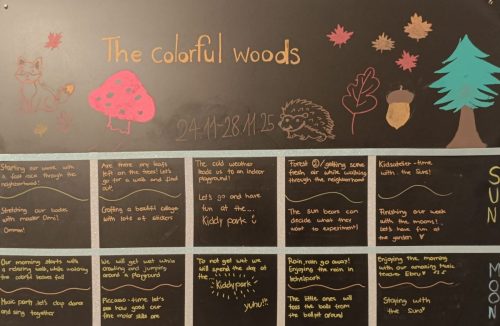 The colorful woods
24.11-28.11.25
Starting our week with
a fast race through the
neighborhood!
Stretching our bodies
with master Omni!
Ommm!
Are there any leafs
left on the trees? Let's
go for a walk and find
out
Crafting a beautiful collage
with lots of stickers
The cold weather
leads us to an indoor
playground!
Let's go and have
fun at the...
Kiddy park
Forest / getting some
fresh air while walking
through the neighborhood
The Sun bears can
decide what they
want to experiment!
Kidsatelier-time
with the Suns!
Finishing our week
with the moons!
Let's have fun at
the garden
SUN
Our morning starts with
a relaxing walk, while watching
the colorful leaves fall
Music party let's clap dance
and sing together
We will get wet while
crawling and jumping
around a Playground
Picasso-time: let's
see how good our
fine motor skills are
To not get wet we
will spend the day at
the...
Kiddypark
yuhu!!
Rain, rain go away!
Enjoying the rain in
The little ones will
toss the balls from
the ballpit around
Enjoying the morning
with our amazing music
teacher Ebru
Staying with
the Suns!
MOON